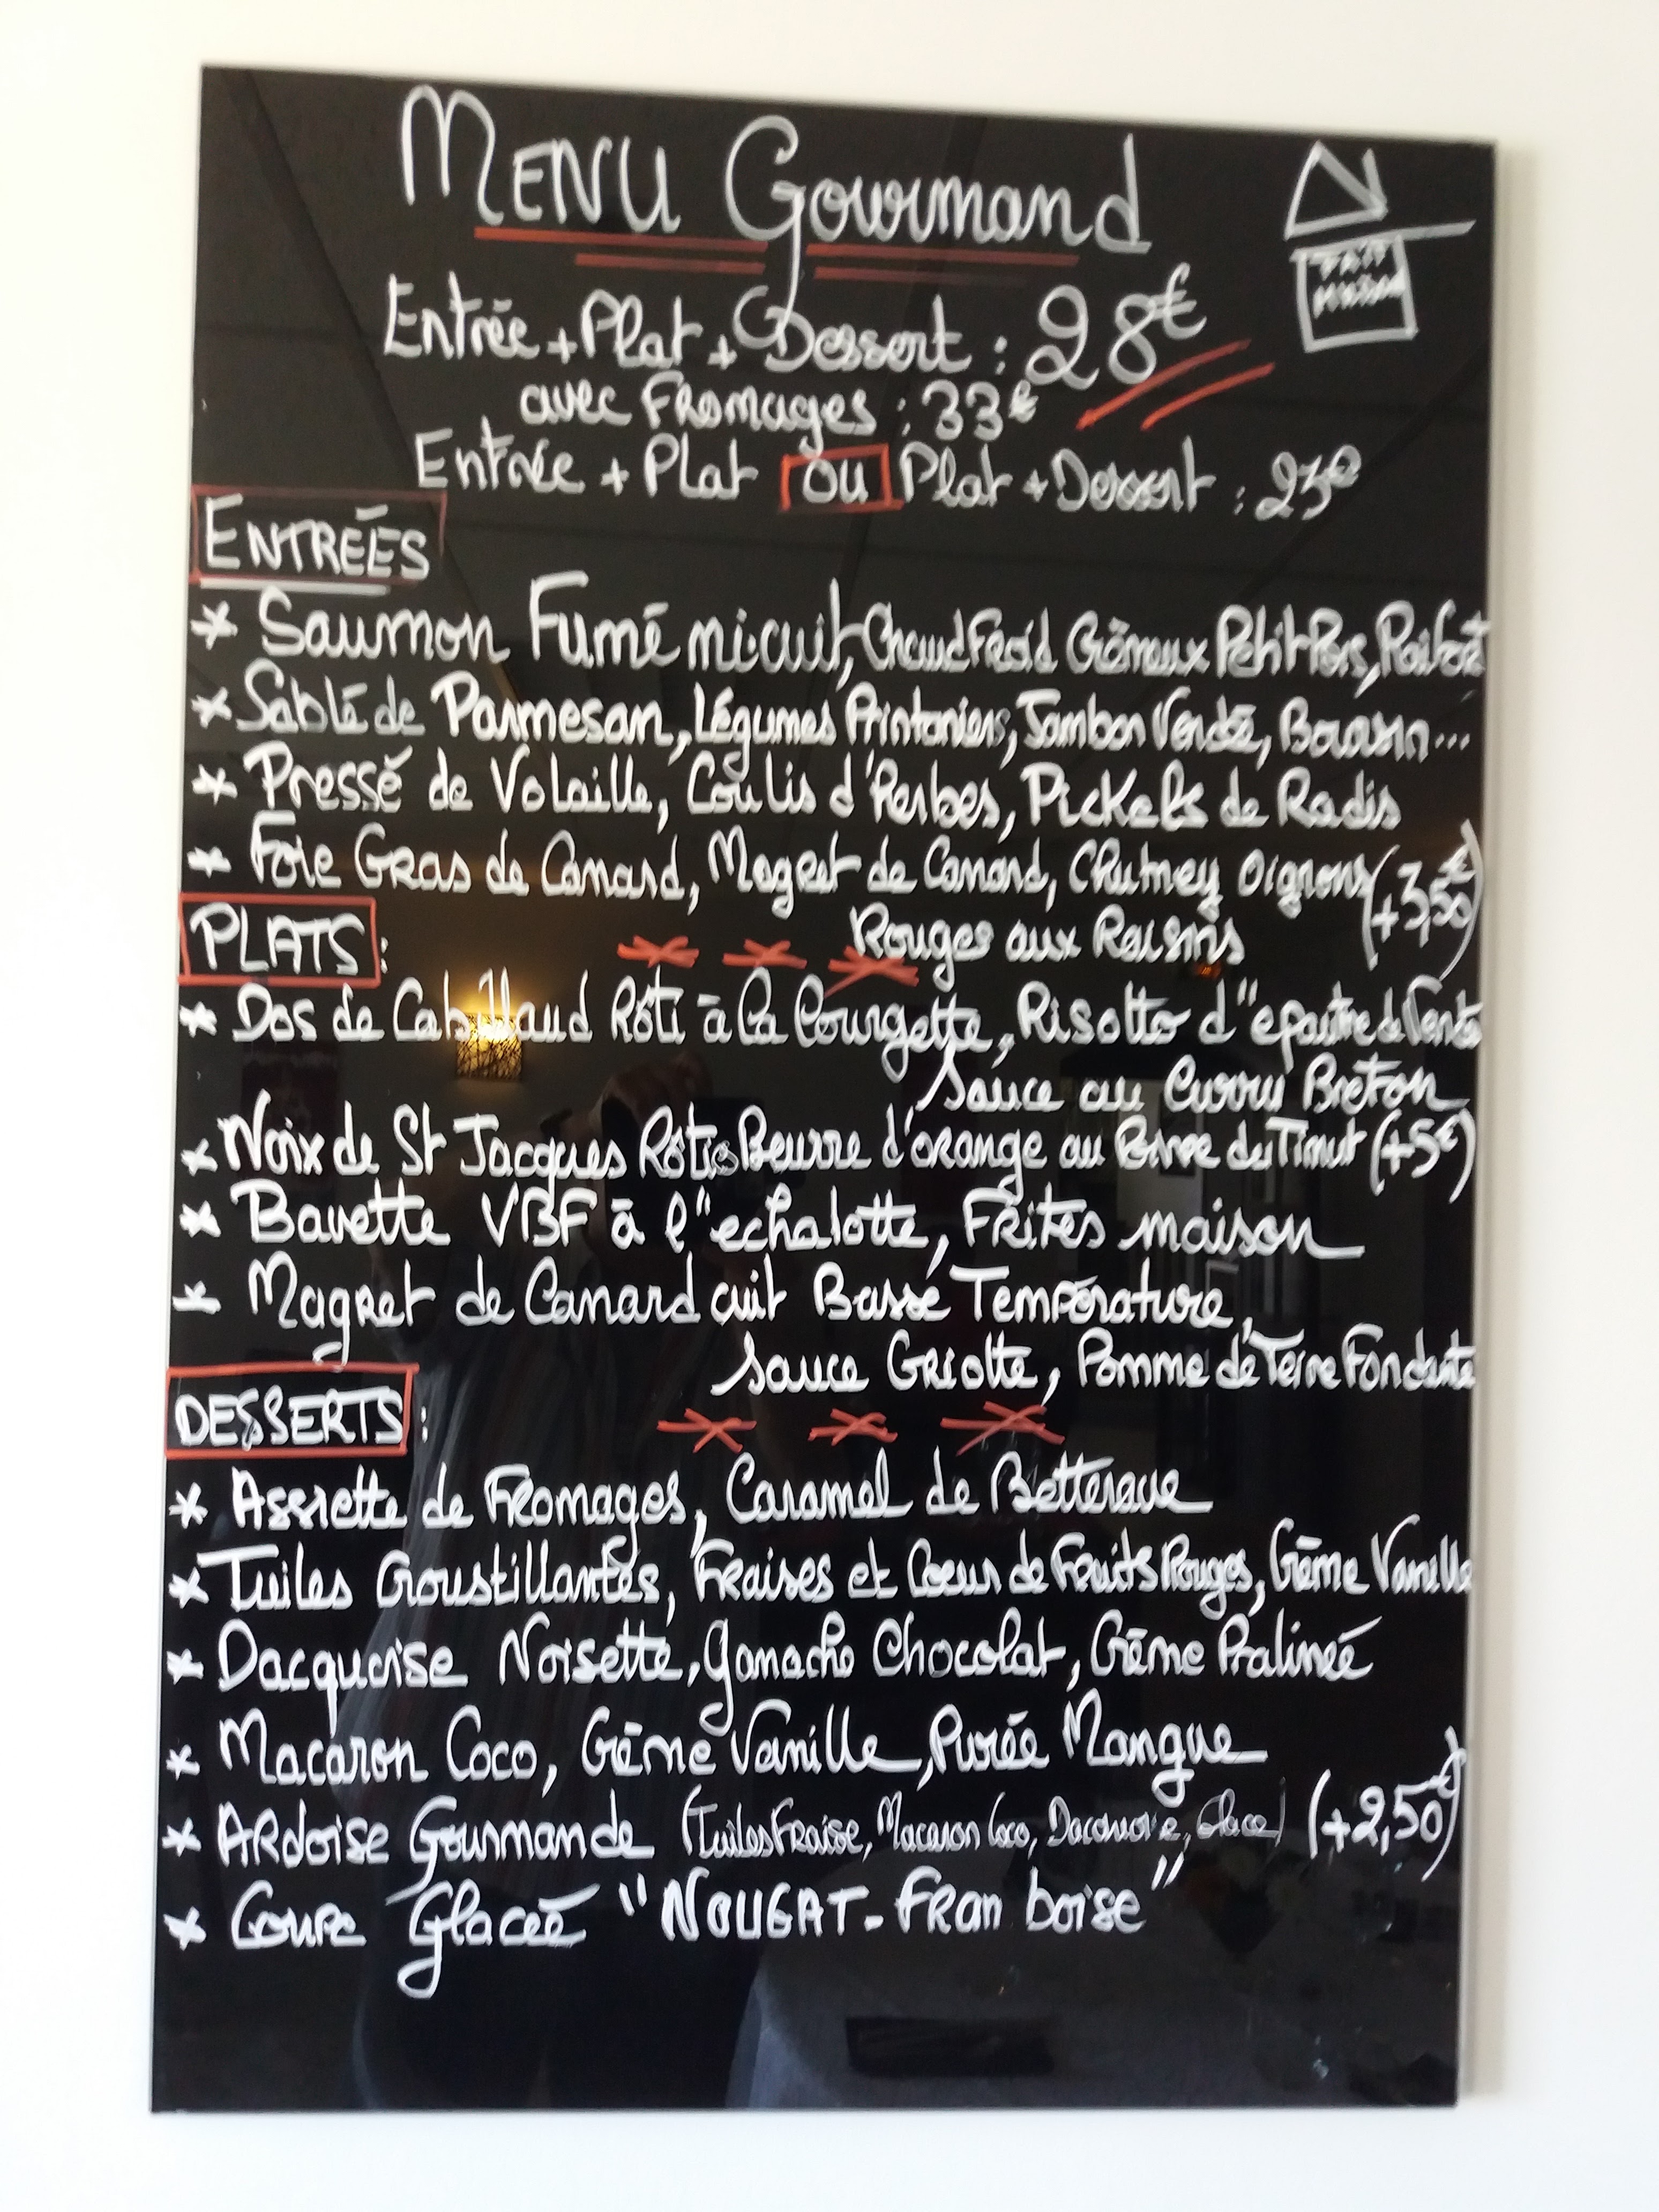 MENU Gourmand
FAIT
MAISON
Entrée + Plat + Dessert : 28€
avec Fromages : 33€
Entrée + Plat OU Plat + Dessert : 23€
ENTRÉES
* Saumon Fumé mi-cuit, Chaud Froid Crémeux Petit Pois,
* Sablé de Parmesan, Légumes Printaniers, Jambon Vendé, Boursin...
* Pressé de Volaille, Coulis d'Herbes, Pickels de Radis
* Foie Gras de Canard, Magret de Canard, Chutney Oignons (+3,50€)
Rouges aux Raisins
PLATS :
* Dos de Cabillaud Rôti à la Courgette, Risotto d"epautre de
Sauce au Curry Breton
* Noix de St Jacques Rôties Beurre d'orange au Poivre de Timut (+5€)
* Bavette VBF à l"echalotte, Frites maison
* Magret de Canard cuit Basse Température,
Sauce Griotte, Pomme de Terre Fondante
DESSERTS :
* Assiette de Fromages, Caramel de Betterave
* Tuiles Croustillantes, Fraises et Coeur de Fruits Rouges, Crème Vanille
* Dacquoise Noisette, ganache Chocolat, Crème Pralinée
* Macaron Coco, Crème Vanille, Purée Mangue
* Ardoise Gourmande (Tuiles Fraise, Macaron Coco, Dacquoise, Glace) (+2,50€)
* Coupe Glaceé "NOUGAT-Fran boise"